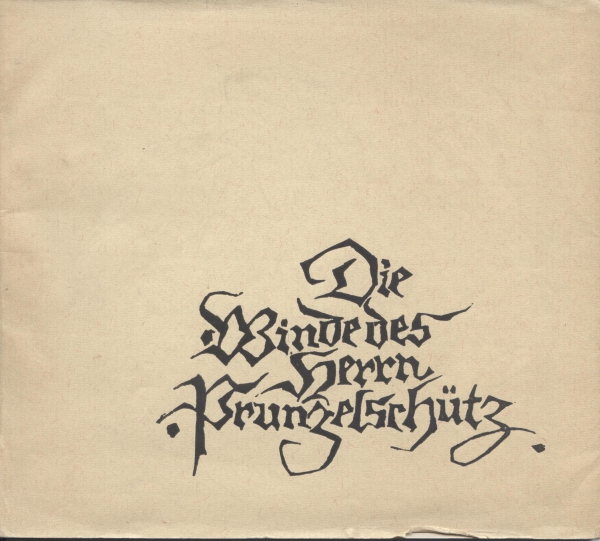 Die
Winde des
Herrn
Prunzelschütz.